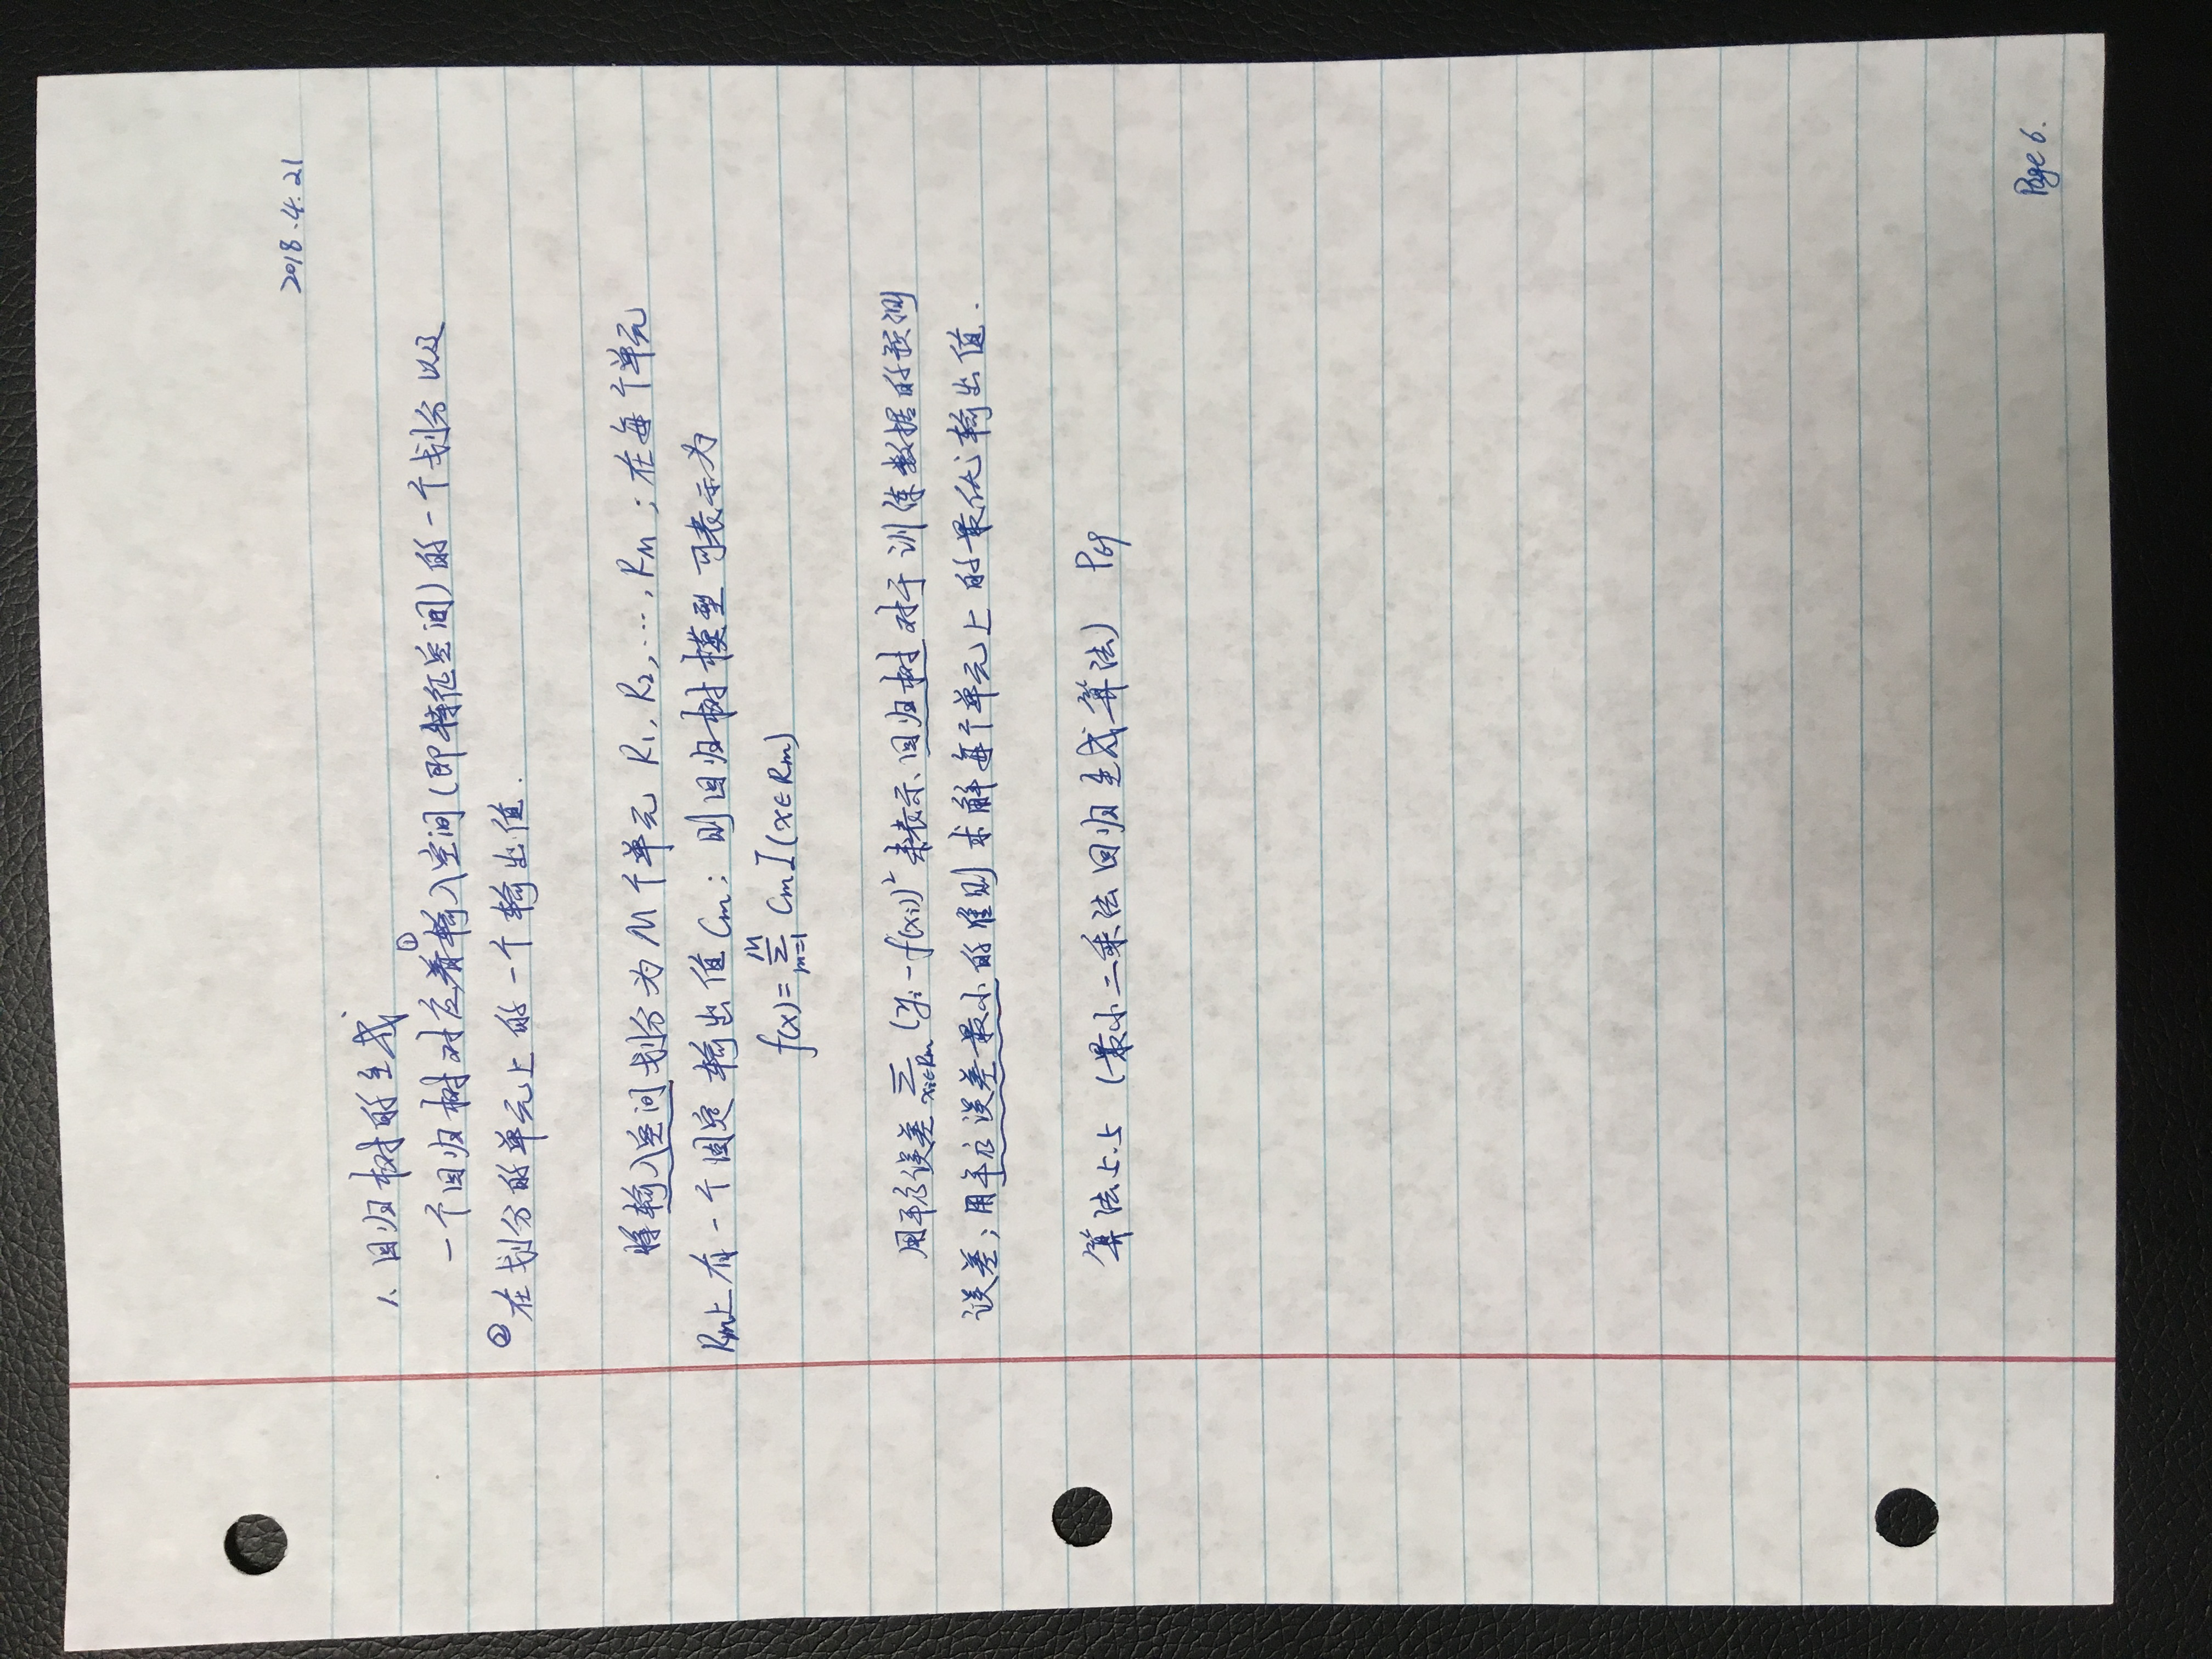 2018.4.21
1. 回归树的生成
一个回归树对应着①输入空间(即特征空间)的一个划分以及
②在划分的单元上的一个输出值.
将输入空间划分为M个单元 R1, R2, ..., RM; 在每个单元
Rm上有一个固定输出值Cm; 则回归树模型可表示为
f(x)=∑_{m=1}^{M} Cm I(x∈Rm)
用平方误差 ∑_{xi∈Rm} (yi-f(xi))² 来表示回归树对于训练数据的预测
误差; 用平方误差最小的准则求解每个单元上的最优输出值.
算法5.5 (最小二乘法回归生成算法) P69
Page 6.